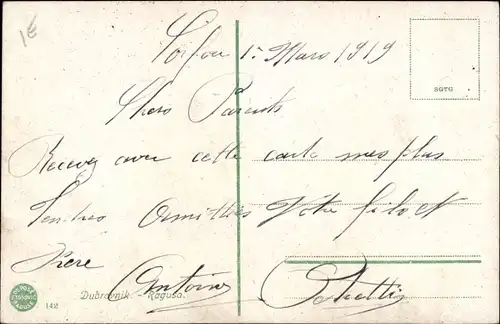 1E
Corfou 1. Mars 1919
SGTG
Chers Parents
Recevez avec cette carte mes plus
Tendres Amitiés Votre fils et
Frere Antoine
142 Dubrovnik - Ragusa.